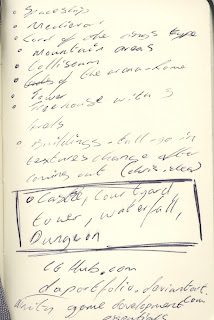 • Spaceship
• Medieval
• Lord of the rings type
• Mountain areas
• Colliseum
• of the arena-dome
• Tower
• Treehouse with 3
levels
• Buildings - tall - go in
textures change after
coming out (chris idea)
• Castle, Courtyard
tower, waterfall,
Dungeon
CGHub.com
daportfolio, deviantart.com
Unity game development
essentials